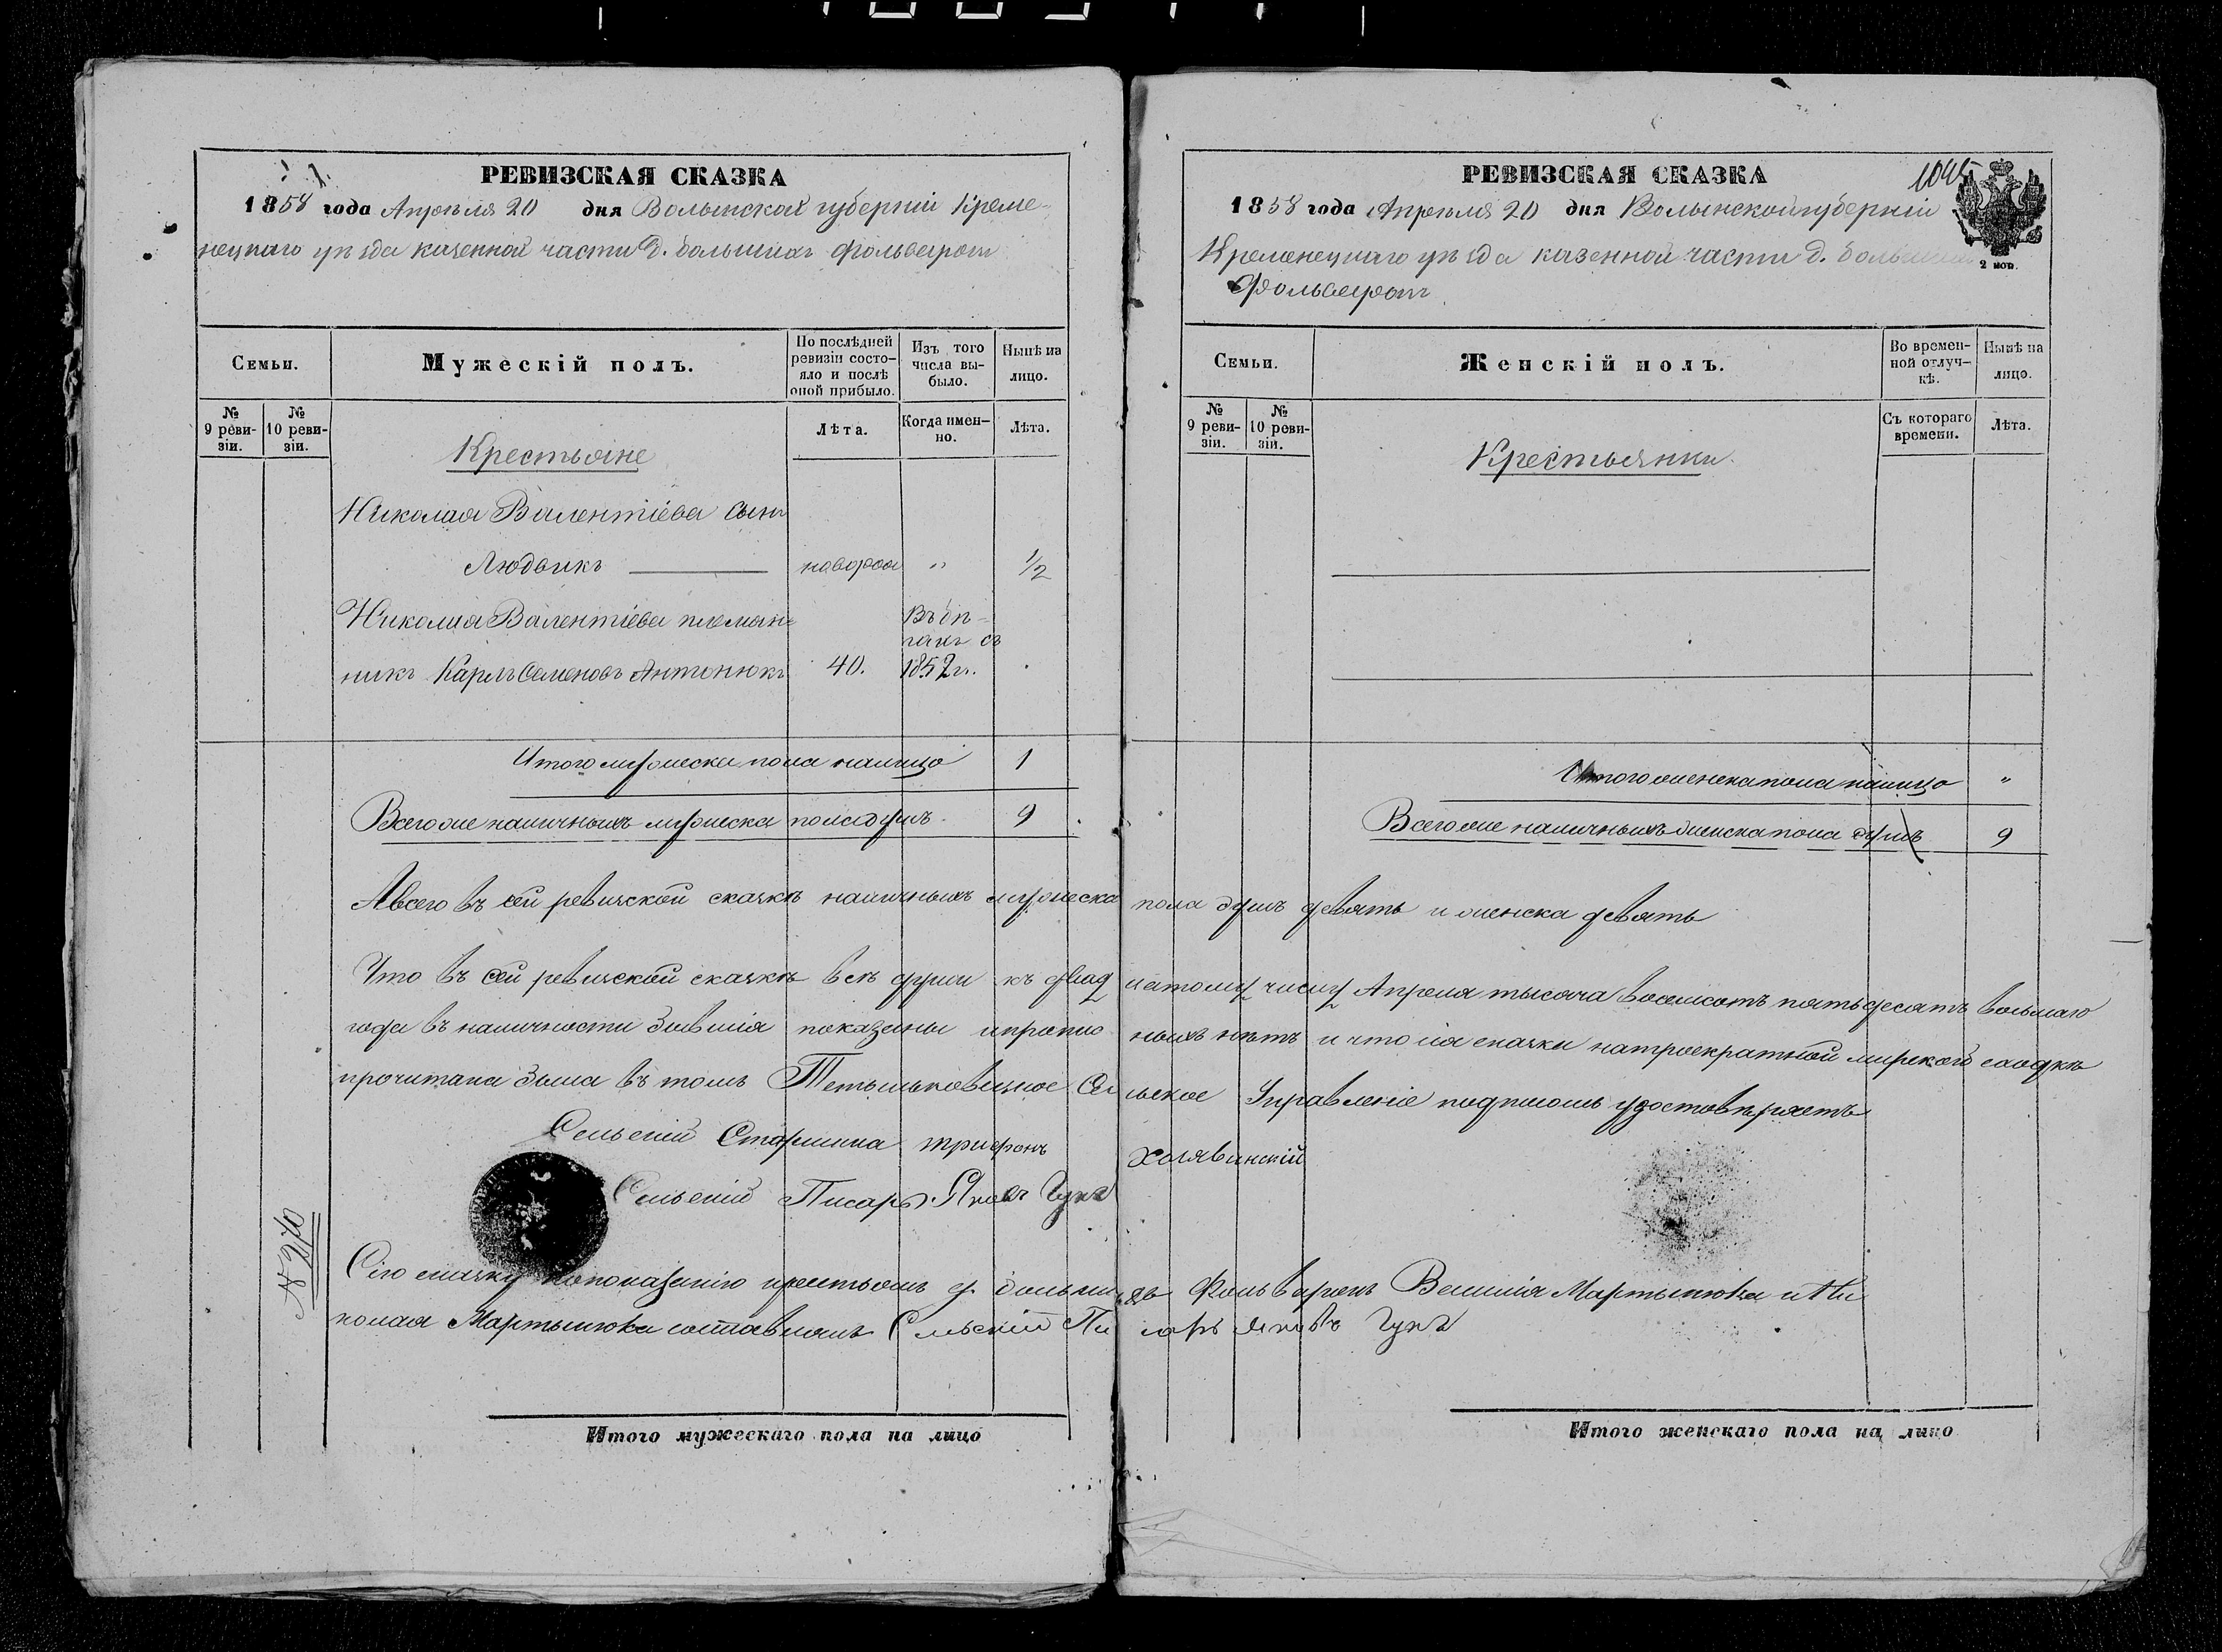 РЕВИЗСКАЯ СКАЗКА
1858 года Апреля 20 дня Волынской губерніи Креме-
нецкаго уѣзда казенной части д. большихъ фольварокъ
Семьи.
Мужескій полъ.
По послѣдней ревизіи состояло и послѣ оной прибыло.
Изъ того числа вы-было.
Нынѣ на лицо.
№ 9 реви-зіи.
№ 10 реви-зіи.
Лѣта.
Когда имен-но.
Лѣта.
Крестьяне
Николая Валентіева сынъ
Людвикъ новорож „ 1/2
Николая Валентіева племян=
никъ Карлъ Семеновъ Антонюкъ 40. Въ бѣ-гахъ съ 1852 г.
Итого мужеска пола налицо 1
Всего же наличныхъ мужеска пола душъ 9
РЕВИЗСКАЯ СКАЗКА
1045
1858 года Апреля 20 дня Волынской губерніи
Кременецкаго уѣзда казенной части д. большихъ
Фольварокъ
Семьи.
Женскій полъ.
Во времен-ной отлуч-кѣ.
Нынѣ на лицо.
№ 9 реви-зіи.
№ 10 реви-зіи.
Съ котораго времени.
Лѣта.
Крестьянки.
Итого женска пола налицо „
Всего же наличныхъ женска пола душъ 9
А всего въ сей ревизской сказкѣ наличныхъ мужеска пола душъ девять и женска девять
Что въ сей ревизской сказкѣ всѣ души къ двадцатому числу Апреля тысяча восемсотъ пятьдесятъ восьмаго
года въ наличности бывшія показаны и прописныхъ нѣтъ и что сія сказка на троекратной мирской сходкѣ
прочитана была въ томъ Сельское Управленіе подписомъ удостовѣряетъ
Сельскій Старшина Трифонъ
Сельскій Писарь Яковъ Гукъ
№ 270
Сію сказку по показанію крестьянъ д. большихъ Фольварокъ Мартынюка и Ни
колая Мартынюка составлялъ Сельскій Писарь Яковъ Гукъ
Итого мужескаго пола на лицо
Итого женскаго пола на лицо
2 коп.